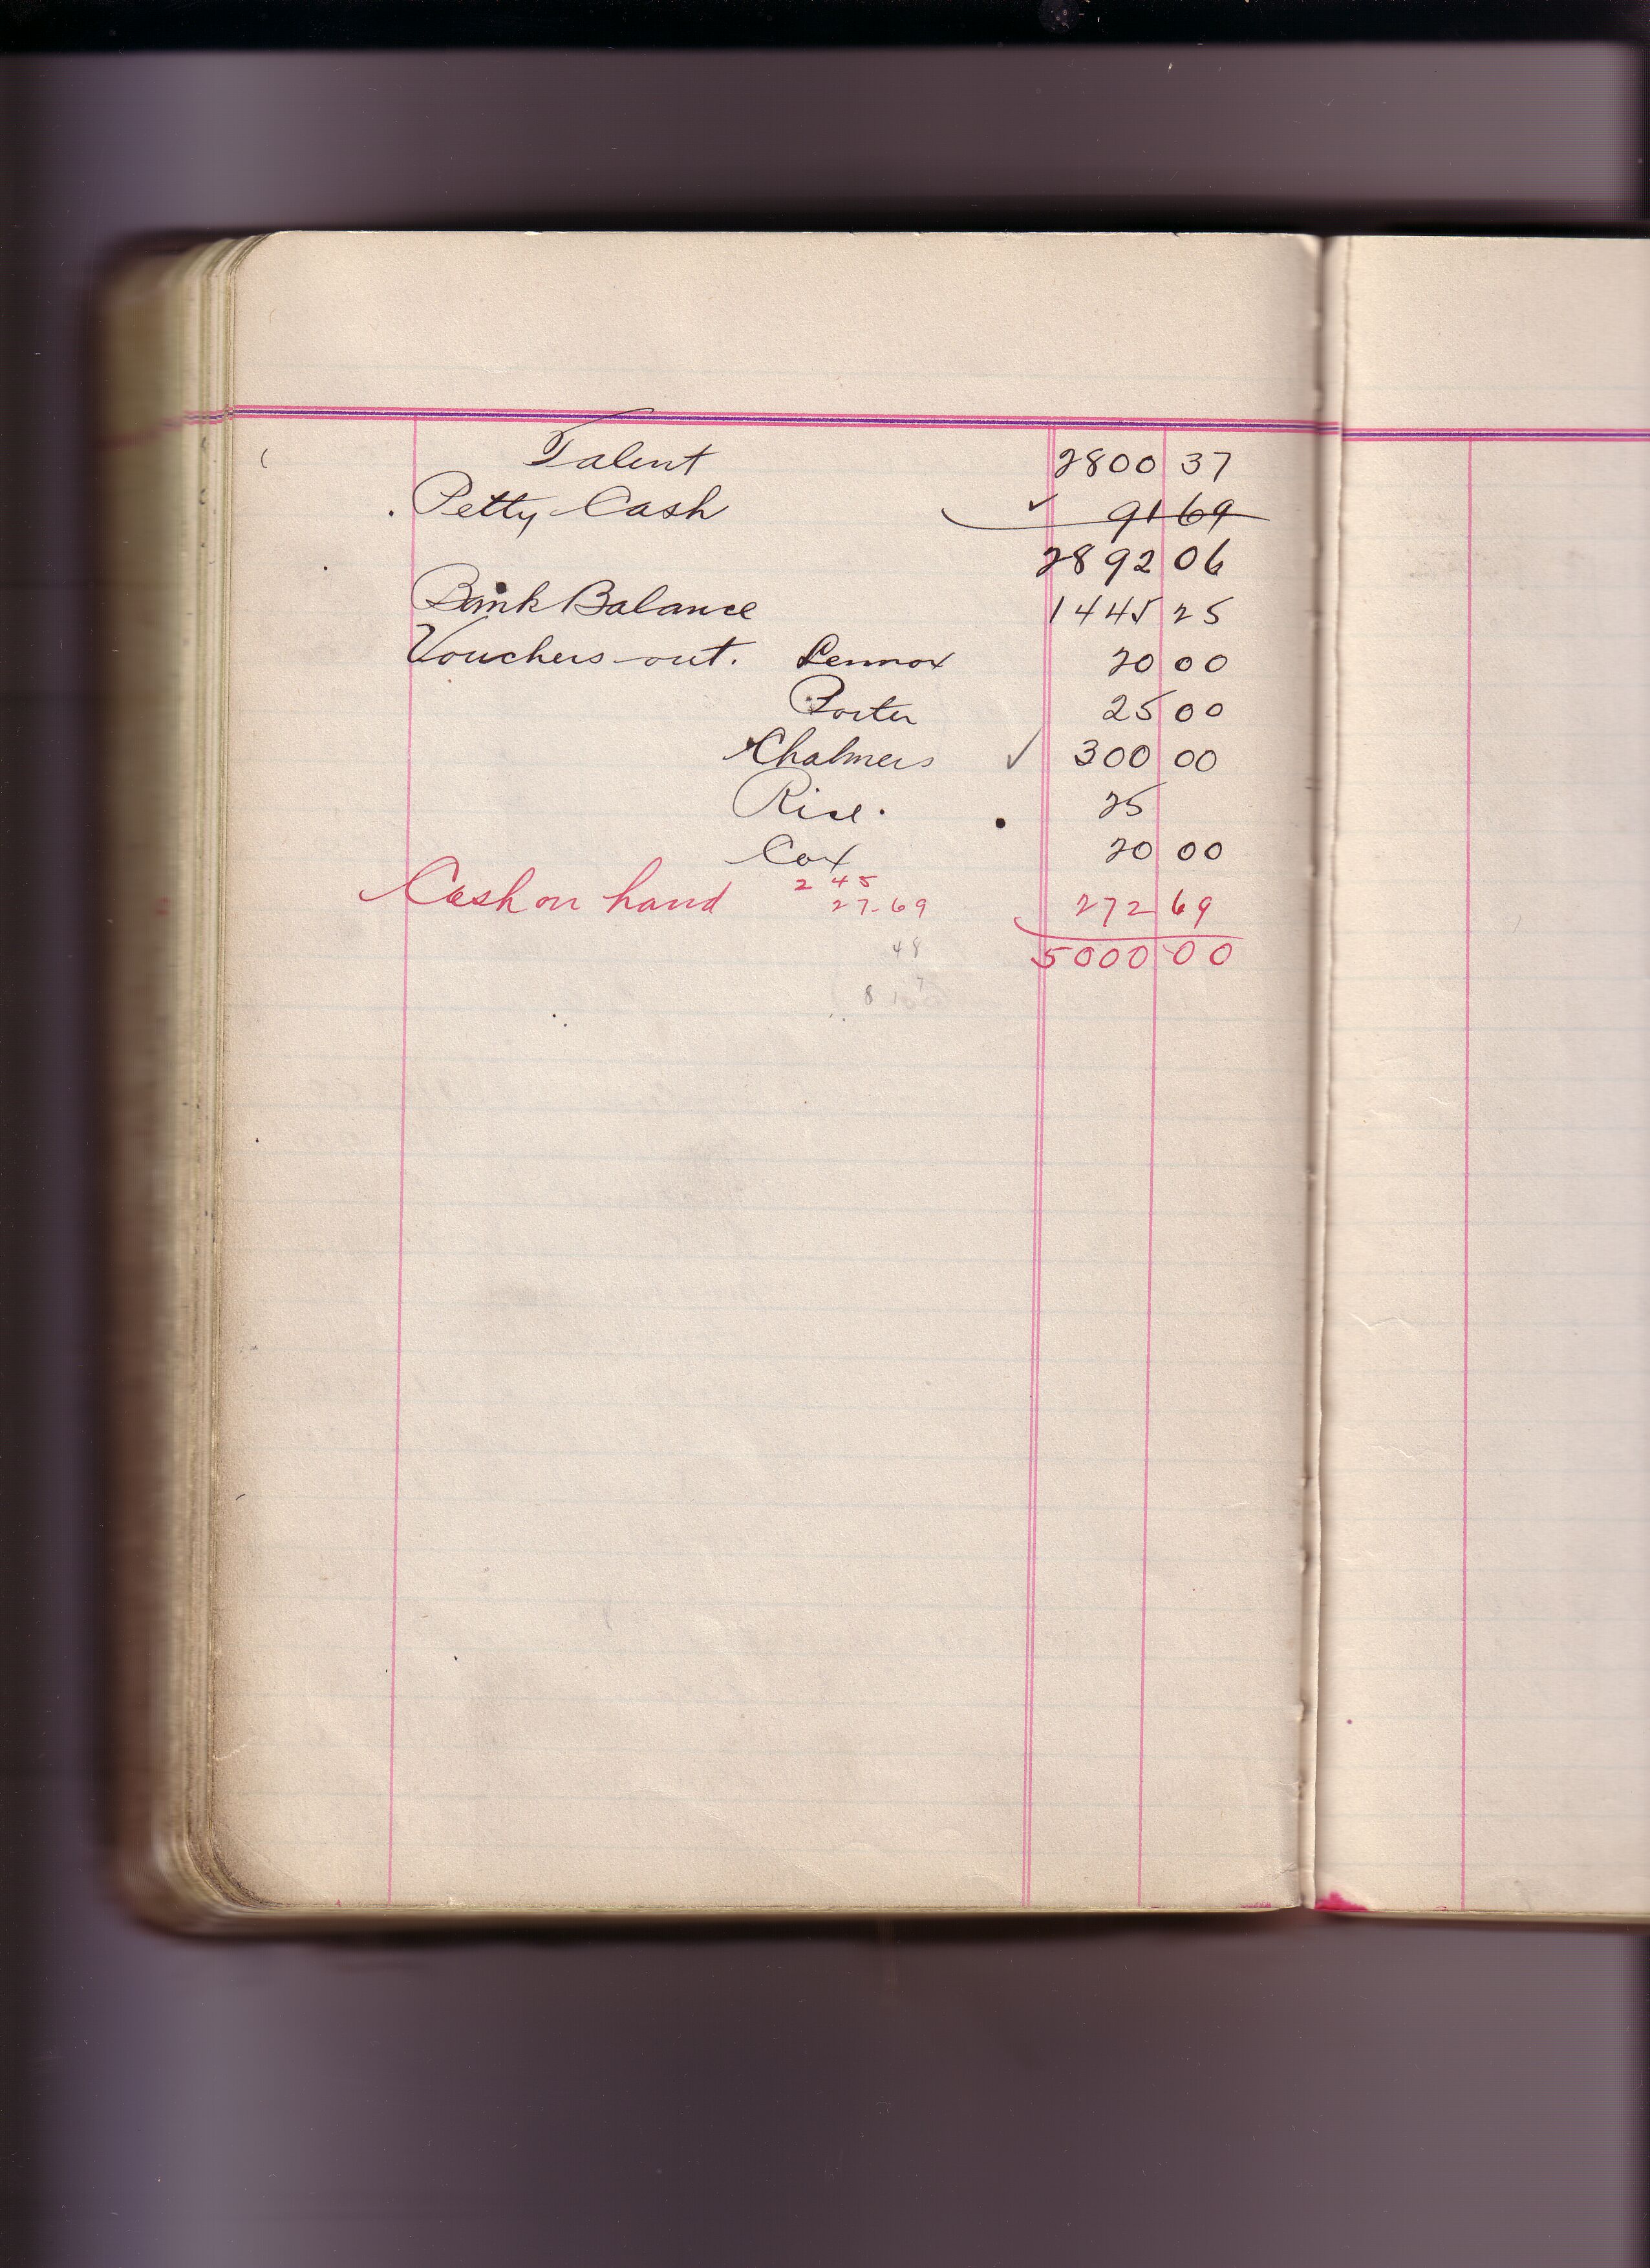 Talent 2800 37
Petty Cash ✓ 91 69
2892 06
Bank Balance 1445 25
Vouchers out. Lennox 20 00
Porter 25 00
Chalmers ✓ 300 00
Rice. 25
Cox 20 00
2 45
Cash on hand 27.69 272 69
48 5000 00